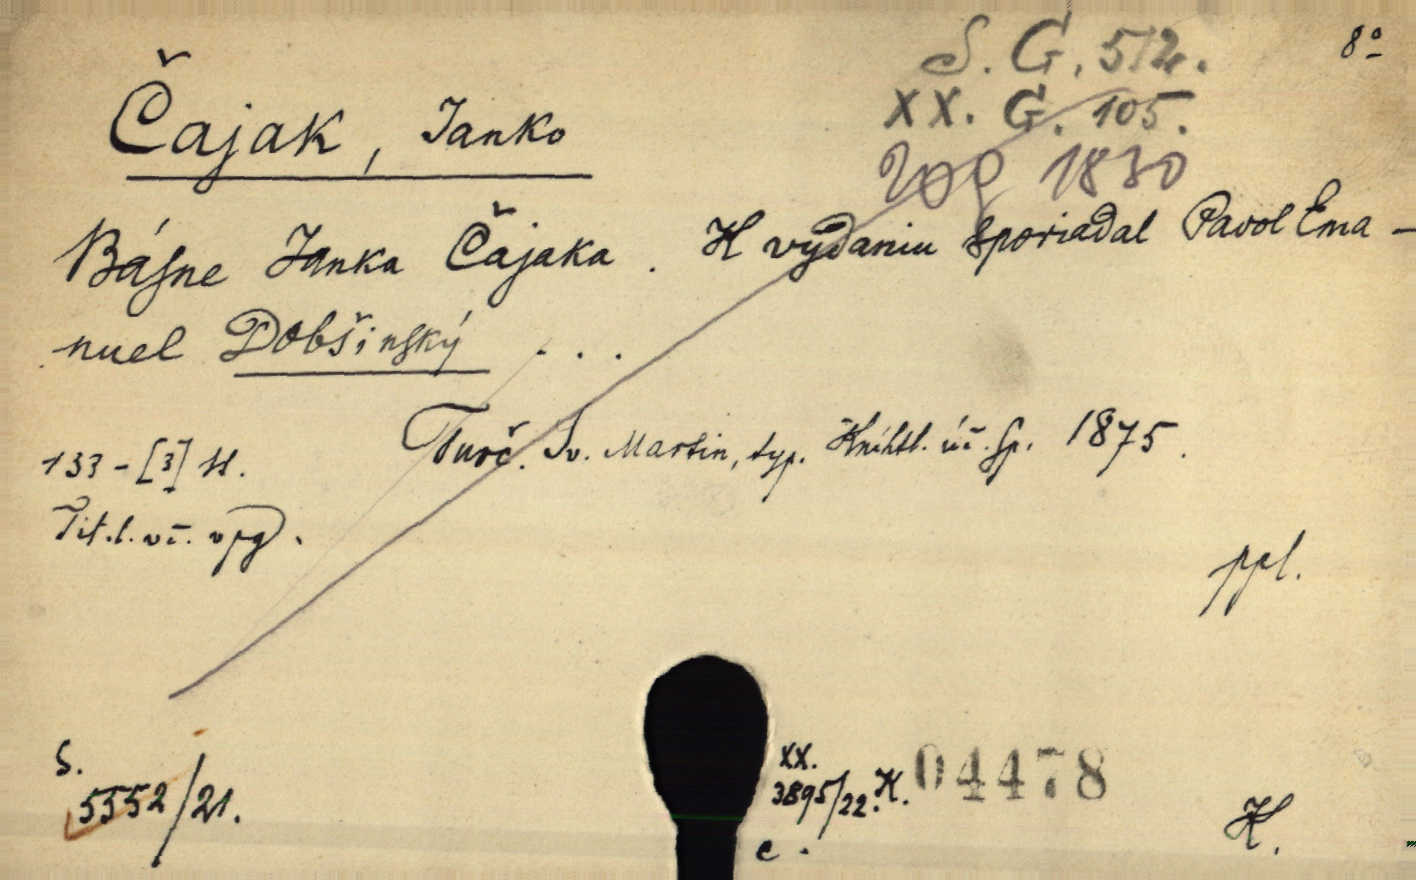 S. G. 512.
8°
XX. G. 105.
1830
Čajak, Janko
Básne Janka Čajaka. K vydaniu sporiadal Pavol Ema-
nuel Dobšinský ...
Turč. Sv. Martin, typ. Kníhtl. úč. sp. 1875.
133-[3] st.
Tit. l. vč. vpg.
ppl.
S.
5552/21.
XX.
3895/22. K.
04478
c.
K.